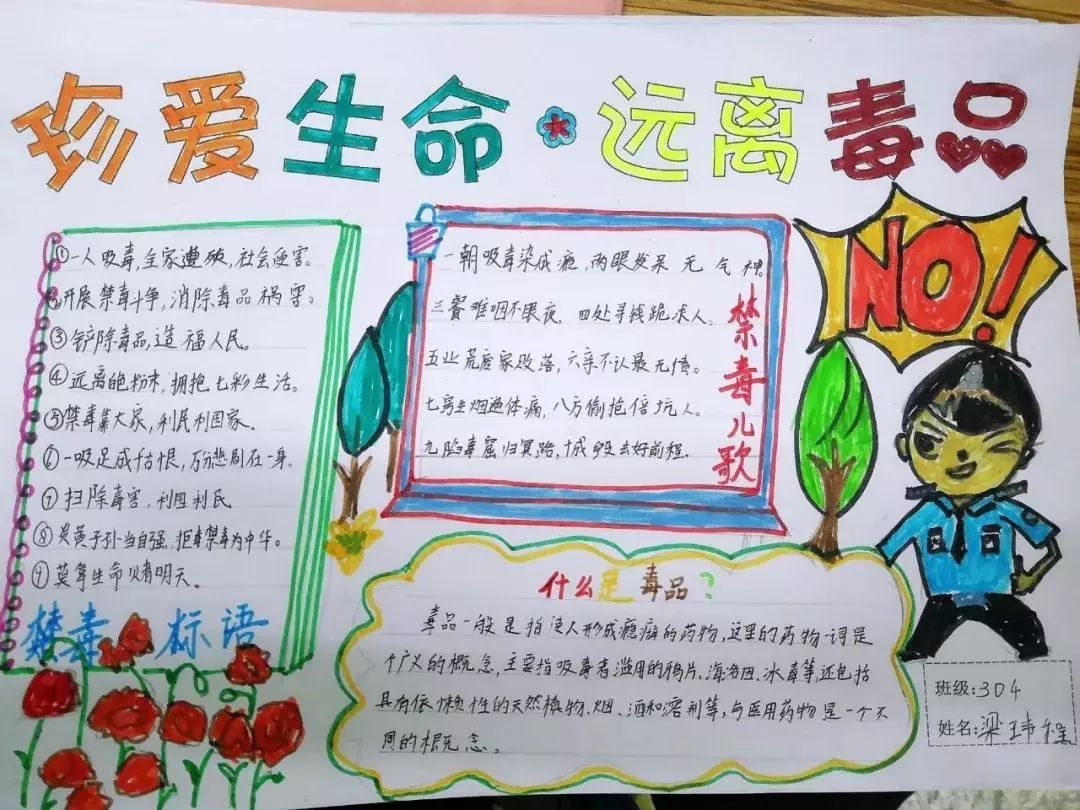 珍爱生命·远离毒品
①一人吸毒,全家遭殃,社会受害。
②开展禁毒斗争,消除毒品祸害。
③铲除毒品,造福人民。
④远离白色粉末,拥抱七彩生活。
⑤禁毒靠大家,利民利国家。
⑥一吸足成千古恨,万分悲剧在一身。
⑦扫除毒害,利国利民
⑧炎黄子孙当自强,拒毒禁毒为中华。
⑨莫拿生命赌明天。
禁毒标语
一朝吸毒染成瘾,两眼发呆无气神。
三餐难咽不畏夜,四处寻钱跪求人。
五业荒废家败落,六亲不认最无情。
七窍生烟遍体病,八方偷抢倍坑人。
九陷毒窟归冥路,十成毁去好前程。
禁毒儿歌
NO!
什么是毒品?
毒品一般是指使人形成瘾癖的药物,这里的药物一词是
个广义的概念,主要指吸毒者滥用的鸦片、海洛因、冰毒等,还包括
具有依懒性的天然植物、烟、酒和溶剂等,与医用药物是一个不
同的概念。
班级:304
姓名:梁玮程